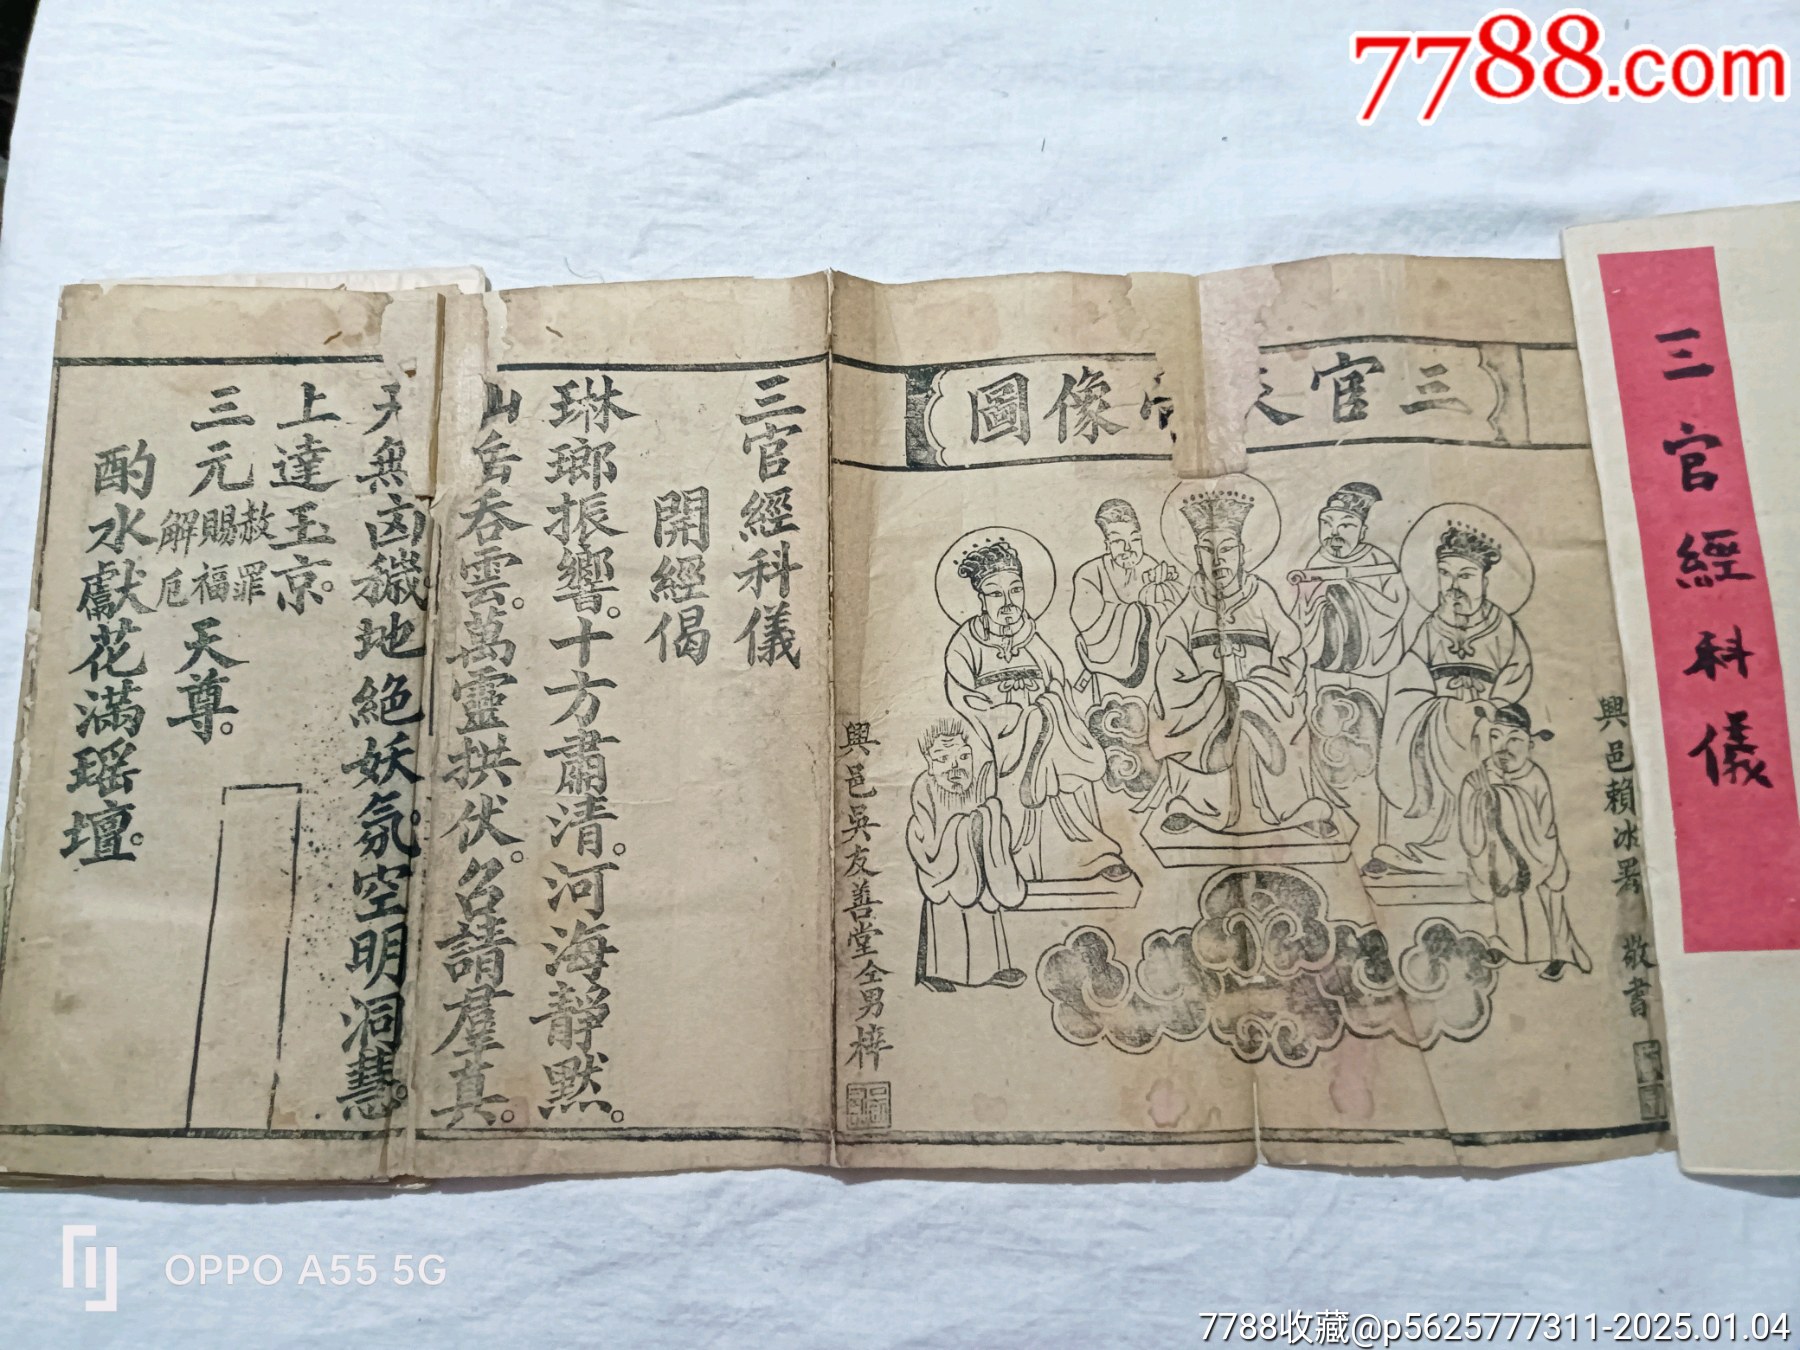 7788.com
三官經科儀
三官大帝像圖
興邑賴冰署 敬書
興邑吳友善堂仝男梓
三官經科儀
開經偈
琳瑯振響。十方肅清。河海靜默。
山岳吞雲。萬靈拱伏。召請羣真。
天無凶穢。地絕妖氛。空明洞慧。
上達玉京。
三元赦罪賜福解厄天尊。
酌水獻花滿瑤壇。
OPPO A55 5G
7788收藏@p5625777311-2025.01.04